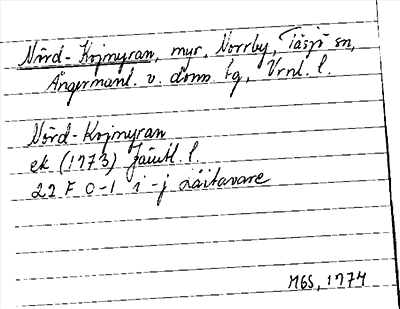 Nörd-Kojmyran, myr, Norrby, Tåsjö sn,
Ångermanl. v. doms bg, Vrnl. l.
Nörd-Kojmyran
ek (1973) Jämtl. l.
22 F 0-1 i-j Räitavare
MGS, 1974